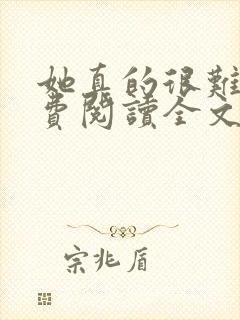 她真的很難
費閱讀全文
宗兆盾